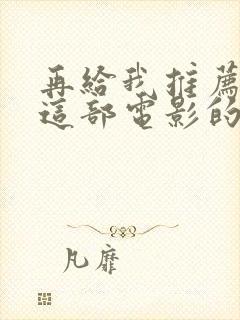 再給我推薦
這部電影的
凡靡